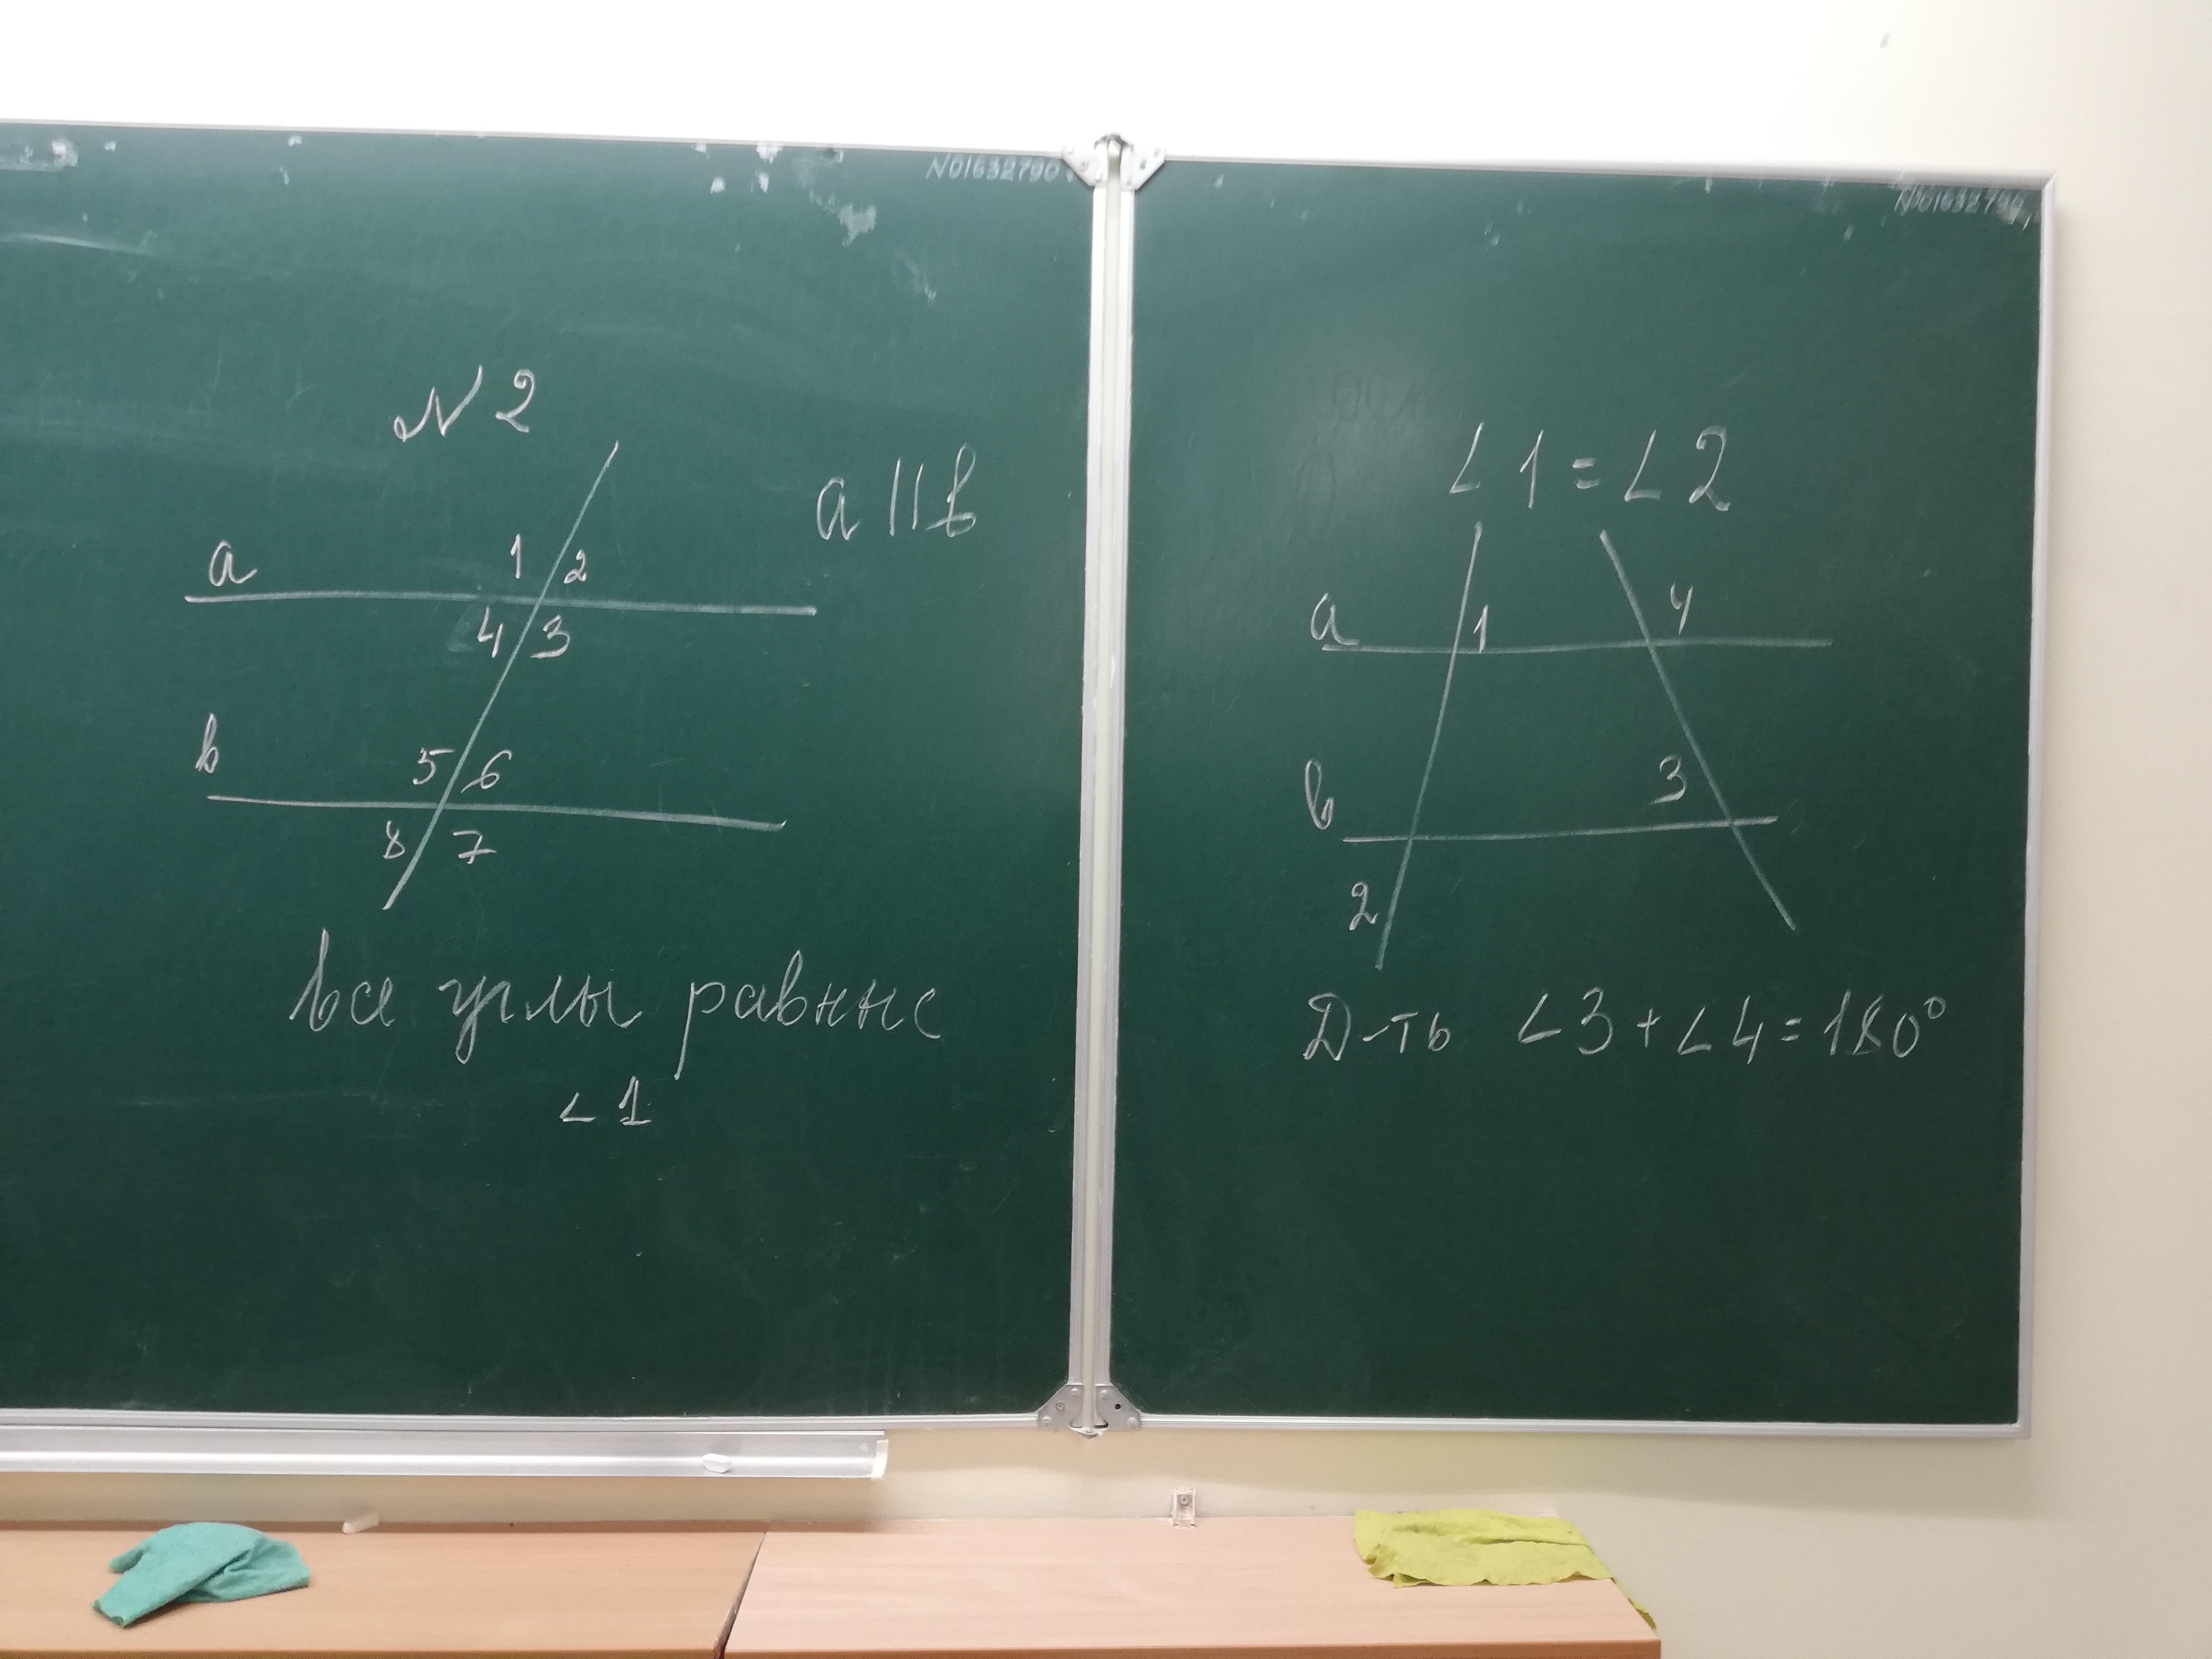 N01632790
N 2
a || b
a 1 2
4 3
b 5 6
8 7
все углы равные
∠1
∠1 = ∠2
a 1 4
b 3
2
Д-ть ∠3 + ∠4 = 180°